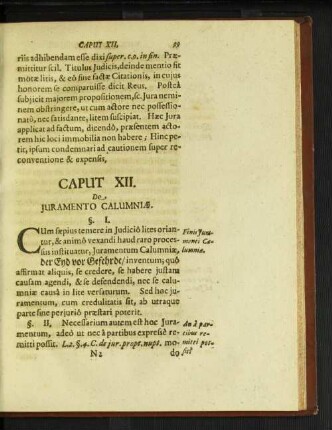 CAPUT XII. 89
riis adhibendam esse dixi super. c. 0. in fin. Præ-
mittitur scil. Titulus Judicis, deinde mentio fit
motæ litis, & eò sine factæ Citationis, in cujus
honorem se comparuisse dicit Reus. Posteà
subjicit majorem propositionem, sc. Jura nemi-
nem obstringere, ut cum actore nec possessio-
natô, nec satisdante, litem suscipiat. Hæc Jura
applicat ad factum, dicendô, præsentem acto-
rem hic loci immobilia non habere; Hinc pe-
tit, ipsum condemnari ad cautionem super re-
conventione & expensis.
CAPUT XII.
De
JURAMENTO CALUMNIÆ.
§. I.
CUm sæpius temere in Judiciô lites orian-
tur, & animô vexandi haud raro proces-
sus instituatur, Juramentum Calumniæ,
der Eyd vor Gefehrde/ inventum; quô
affirmat aliquis, se credere, se habere justam
causam agendi, & se defendendi, nec se calu-
mniæ causâ in lite versaturum. Sed hoc ju-
ramentum, cum credulitatis sit, ab utraque
parte sine perjuriô præstari poterit.
Finis Jura-
menti Ca-
lumniæ.
§. II. Necessarium autem est hoc Jura-
mentum, adeò ut nec à partibus expressè re-
mitti possit. L. 2. §. 4. C. de jur. propt. mo-
An à par-
tibus re-
mitti pos-
sit?
N 2 do